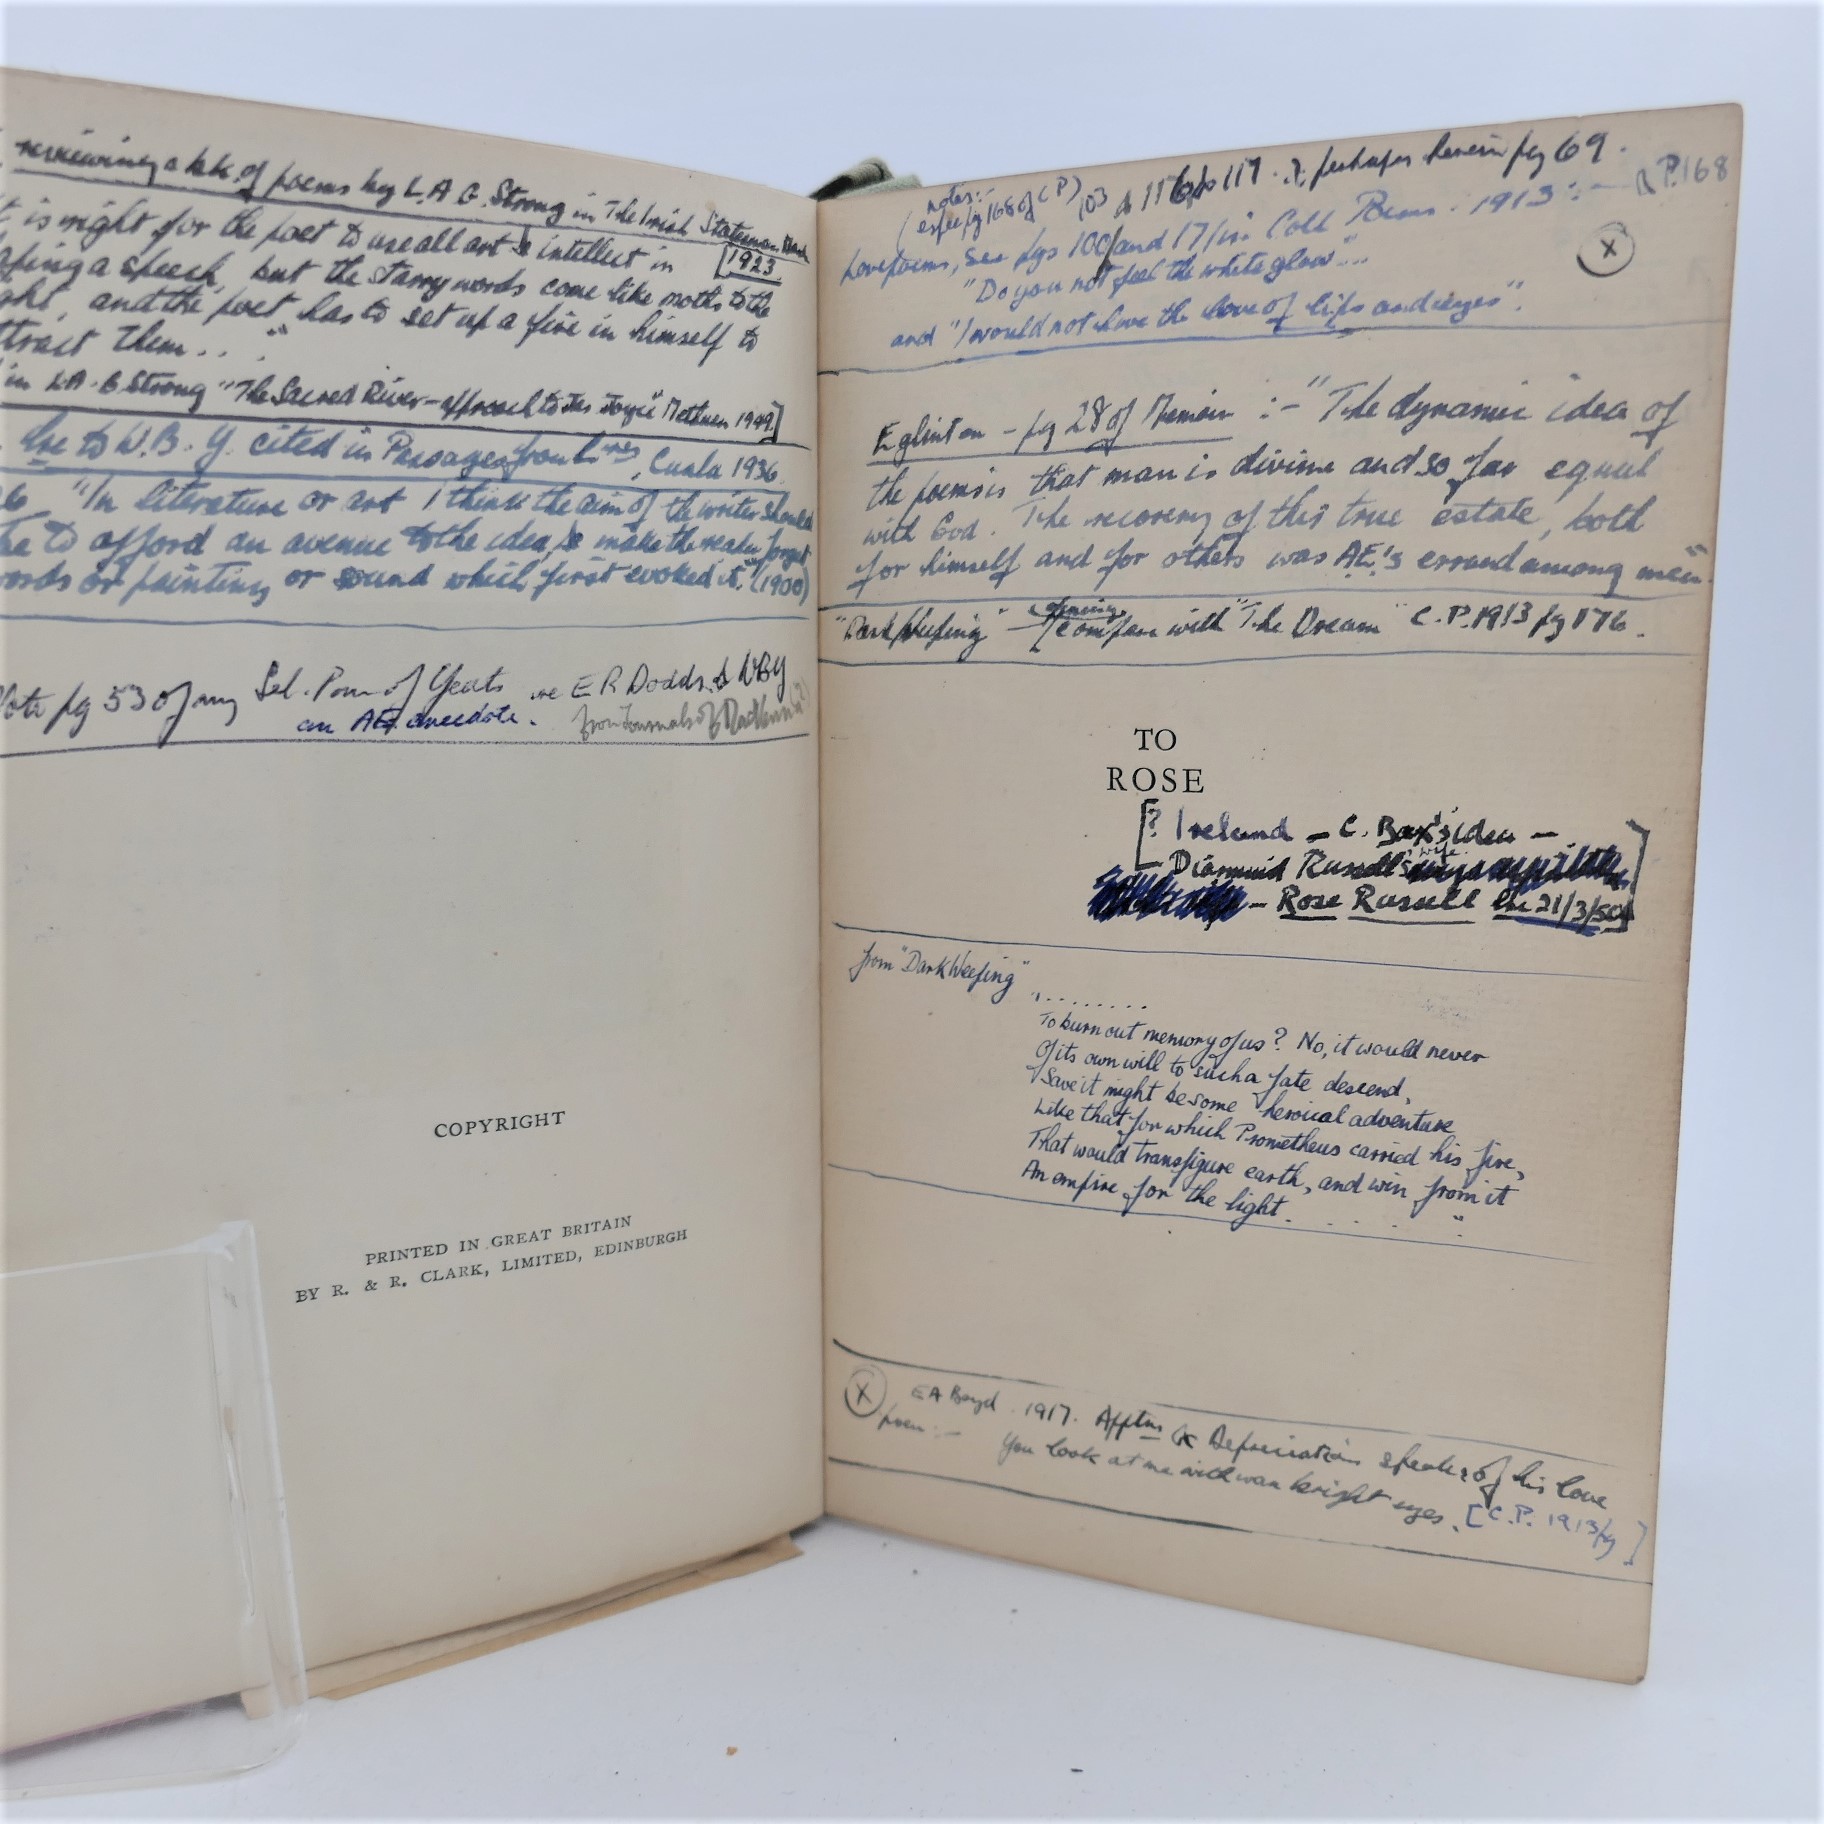 reviewing a bk. of poems by L.A.G. Strong in The Irish Statesman
[1923.
is right for the poet to use all art & intellect in
a speech, but the starry words come like moths to the
and the poet has to set up a fire in himself to
them . . . "
in L.A.G. Strong "The Sacred River – approach to Jas Joyce" Methuen 1949]
to W.B.Y. cited in Passages from L, Cuala 1936.
"In literature or art I think the aim of the writer should
be to afford an avenue to the idea, & make the reader forget
words or painting or sound which first evoked it." (1900)
Note pg 53 of my Sel. Poems of Yeats re E R Dodds & WBY
an AE anecdote.
from Journals of MacKenna (?)
COPYRIGHT
PRINTED IN GREAT BRITAIN
BY R. & R. CLARK, LIMITED, EDINBURGH
notes:-
pg 168 of (P) 103 & 116 to 117. & perhaps herein pg 69.
& P.168
Lovepoems, see pgs 100 and 171 in Coll Poems. 1913 :-
(X)
"Do you not feel the white glow"...
and "I would not have the love of lips and eyes".
Eglinton – pg 28 of Memoir :– "The dynamic idea of
the poems is that man is divine and so far equal
with God. The recovery of this true estate, both
for himself and for others was AE's errand among men"
"Dark Weeping" – [compare opening with "The Dream" C.P. 1913 pg 176.
TO
ROSE
[? Ireland – C. Bax's idea –
Diarmuid Russell's wife
– Rose Russell 21/3/50]
from "Dark Weeping"
" . . . . . . . .
To burn out memory of us? No, it would never
Of its own will to such a fate descend,
Save it might be some heroical adventure
Like that for which Prometheus carried his fire,
That would transfigure earth, and win from it
An empire for the light . . . . . "
(X) E A Boyd . 1917. Apptns & Depreciation speaks of his love
poem :– You look at me with wan bright eyes. [C.P. 1913 pg ]